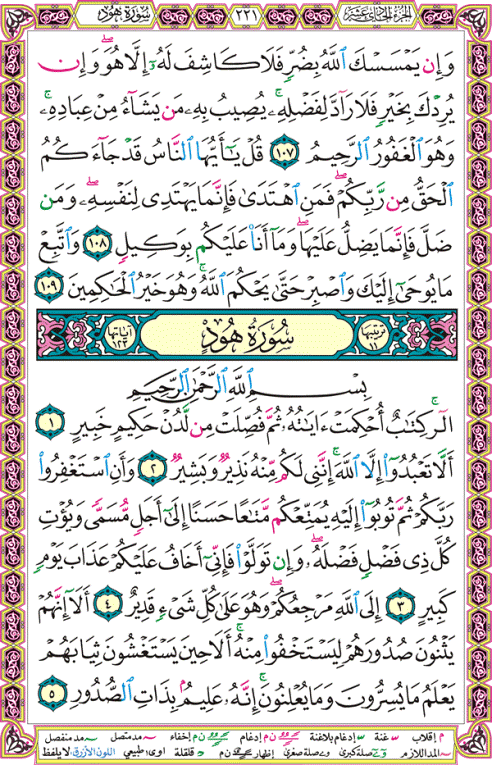 سُورَةُ هُودٍ ٢٢١ الجزء الحادي عشر
وَإِن يَمْسَسْكَ ٱللَّهُ بِضُرٍّ فَلَا كَاشِفَ لَهُۥٓ إِلَّا هُوَ ۖ وَإِن
يُرِدْكَ بِخَيْرٍ فَلَا رَآدَّ لِفَضْلِهِۦ ۚ يُصِيبُ بِهِۦ مَن يَشَآءُ مِنْ عِبَادِهِۦ ۚ
وَهُوَ ٱلْغَفُورُ ٱلرَّحِيمُ ١٠٧ قُلْ يَـٰٓأَيُّهَا ٱلنَّاسُ قَدْ جَآءَكُمُ
ٱلْحَقُّ مِن رَّبِّكُمْ ۖ فَمَنِ ٱهْتَدَىٰ فَإِنَّمَا يَهْتَدِى لِنَفْسِهِۦ ۖ وَمَن
ضَلَّ فَإِنَّمَا يَضِلُّ عَلَيْهَا ۖ وَمَآ أَنَا۠ عَلَيْكُم بِوَكِيلٍ ١٠٨ وَٱتَّبِعْ
مَا يُوحَىٰٓ إِلَيْكَ وَٱصْبِرْ حَتَّىٰ يَحْكُمَ ٱللَّهُ ۚ وَهُوَ خَيْرُ ٱلْحَـٰكِمِينَ ١٠٩
ترتيبها ١١ سُورَةُ هُودٍ آياتها ١٢٣
بِسْمِ ٱللَّهِ ٱلرَّحْمَـٰنِ ٱلرَّحِيمِ
الٓر ۚ كِتَـٰبٌ أُحْكِمَتْ ءَايَـٰتُهُۥ ثُمَّ فُصِّلَتْ مِن لَّدُنْ حَكِيمٍ خَبِيرٍ ١
أَلَّا تَعْبُدُوٓا۟ إِلَّا ٱللَّهَ ۚ إِنَّنِى لَكُم مِّنْهُ نَذِيرٌ وَبَشِيرٌ ٢ وَأَنِ ٱسْتَغْفِرُوا۟
رَبَّكُمْ ثُمَّ تُوبُوٓا۟ إِلَيْهِ يُمَتِّعْكُم مَّتَـٰعًا حَسَنًا إِلَىٰٓ أَجَلٍ مُّسَمًّى وَيُؤْتِ
كُلَّ ذِى فَضْلٍ فَضْلَهُۥ ۖ وَإِن تَوَلَّوْا۟ فَإِنِّىٓ أَخَافُ عَلَيْكُمْ عَذَابَ يَوْمٍ
كَبِيرٍ ٣ إِلَى ٱللَّهِ مَرْجِعُكُمْ ۖ وَهُوَ عَلَىٰ كُلِّ شَىْءٍ قَدِيرٌ ٤ أَلَآ إِنَّهُمْ
يَثْنُونَ صُدُورَهُمْ لِيَسْتَخْفُوا۟ مِنْهُ ۚ أَلَا حِينَ يَسْتَغْشُونَ ثِيَابَهُمْ
يَعْلَمُ مَا يُسِرُّونَ وَمَا يُعْلِنُونَ ۚ إِنَّهُۥ عَلِيمٌۢ بِذَاتِ ٱلصُّدُورِ ٥
م إقلاب س غنة س إدغام بلاغنة ن م إدغام ن م إخفاء مد متصل مد منفصل
المد اللازم صلة كبرى وصلة صغرى إظهار ن م قلقلة اوى: طبيعي اللون الأزرق: لا يلفظ